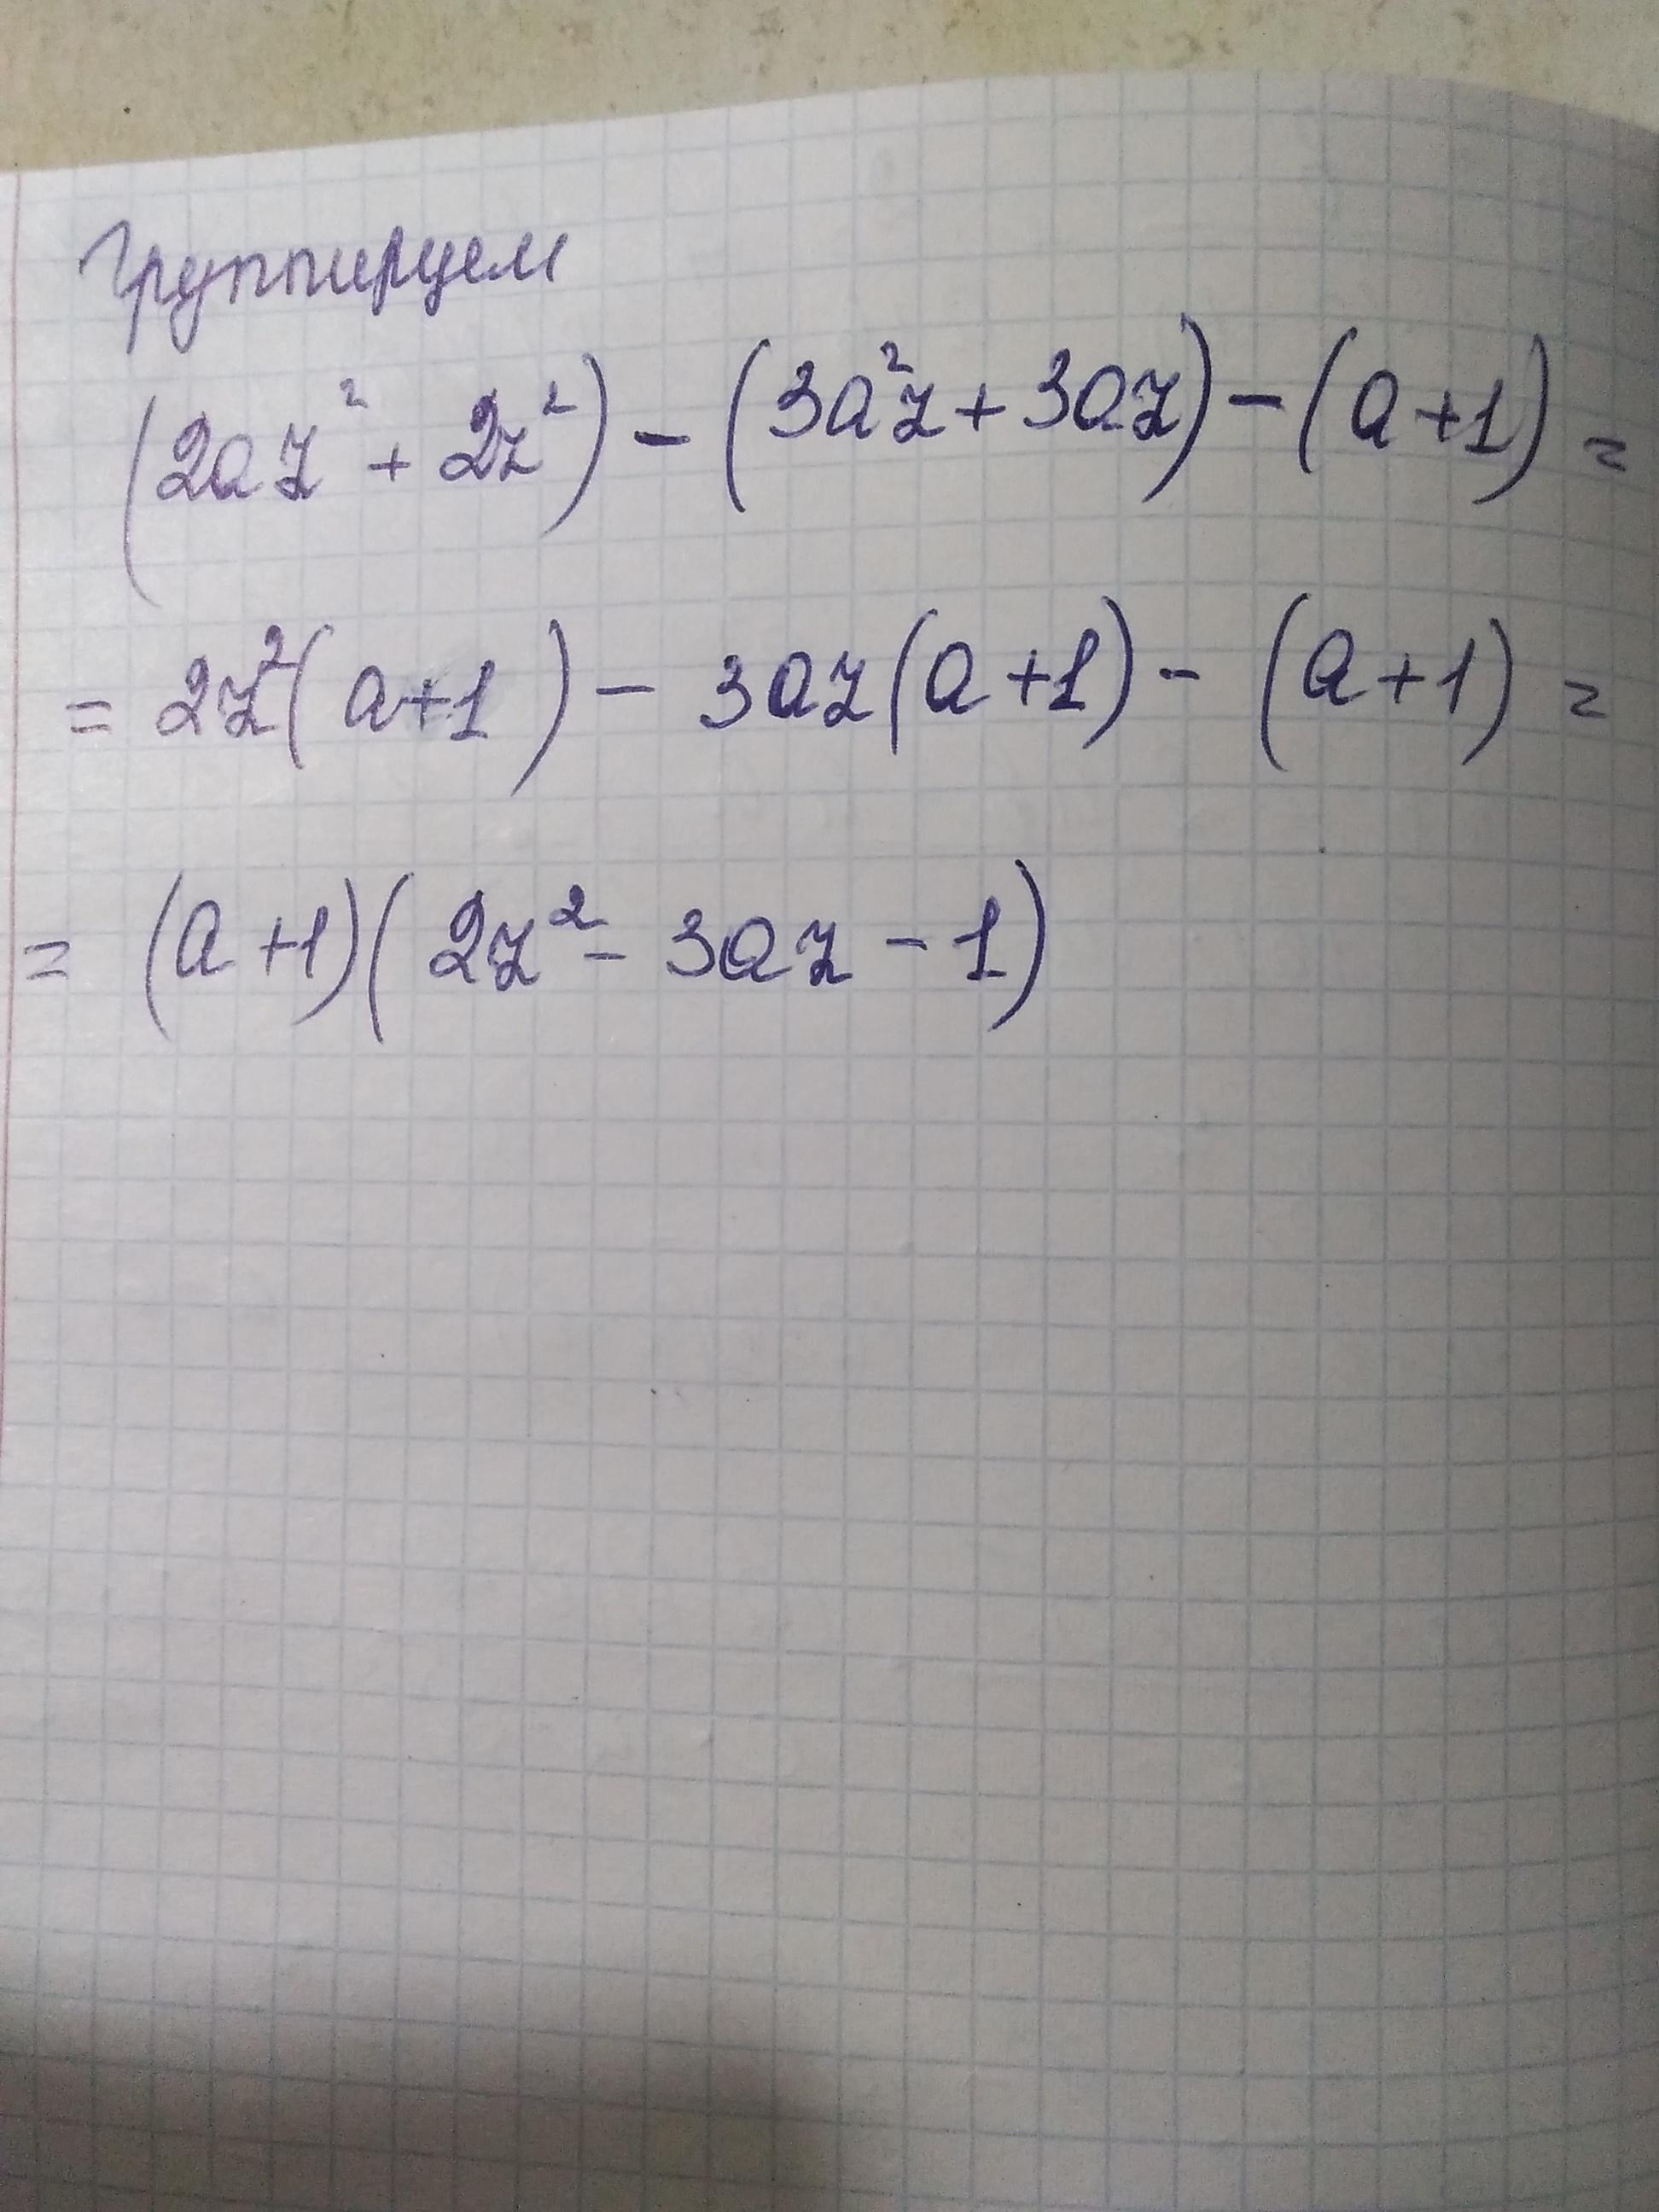 Группируем
(2az² + 2z²) - (3a²z + 3az) - (a + 1) =
= 2z²(a+1) - 3az(a+1) - (a+1) =
= (a+1)(2z² - 3az - 1)